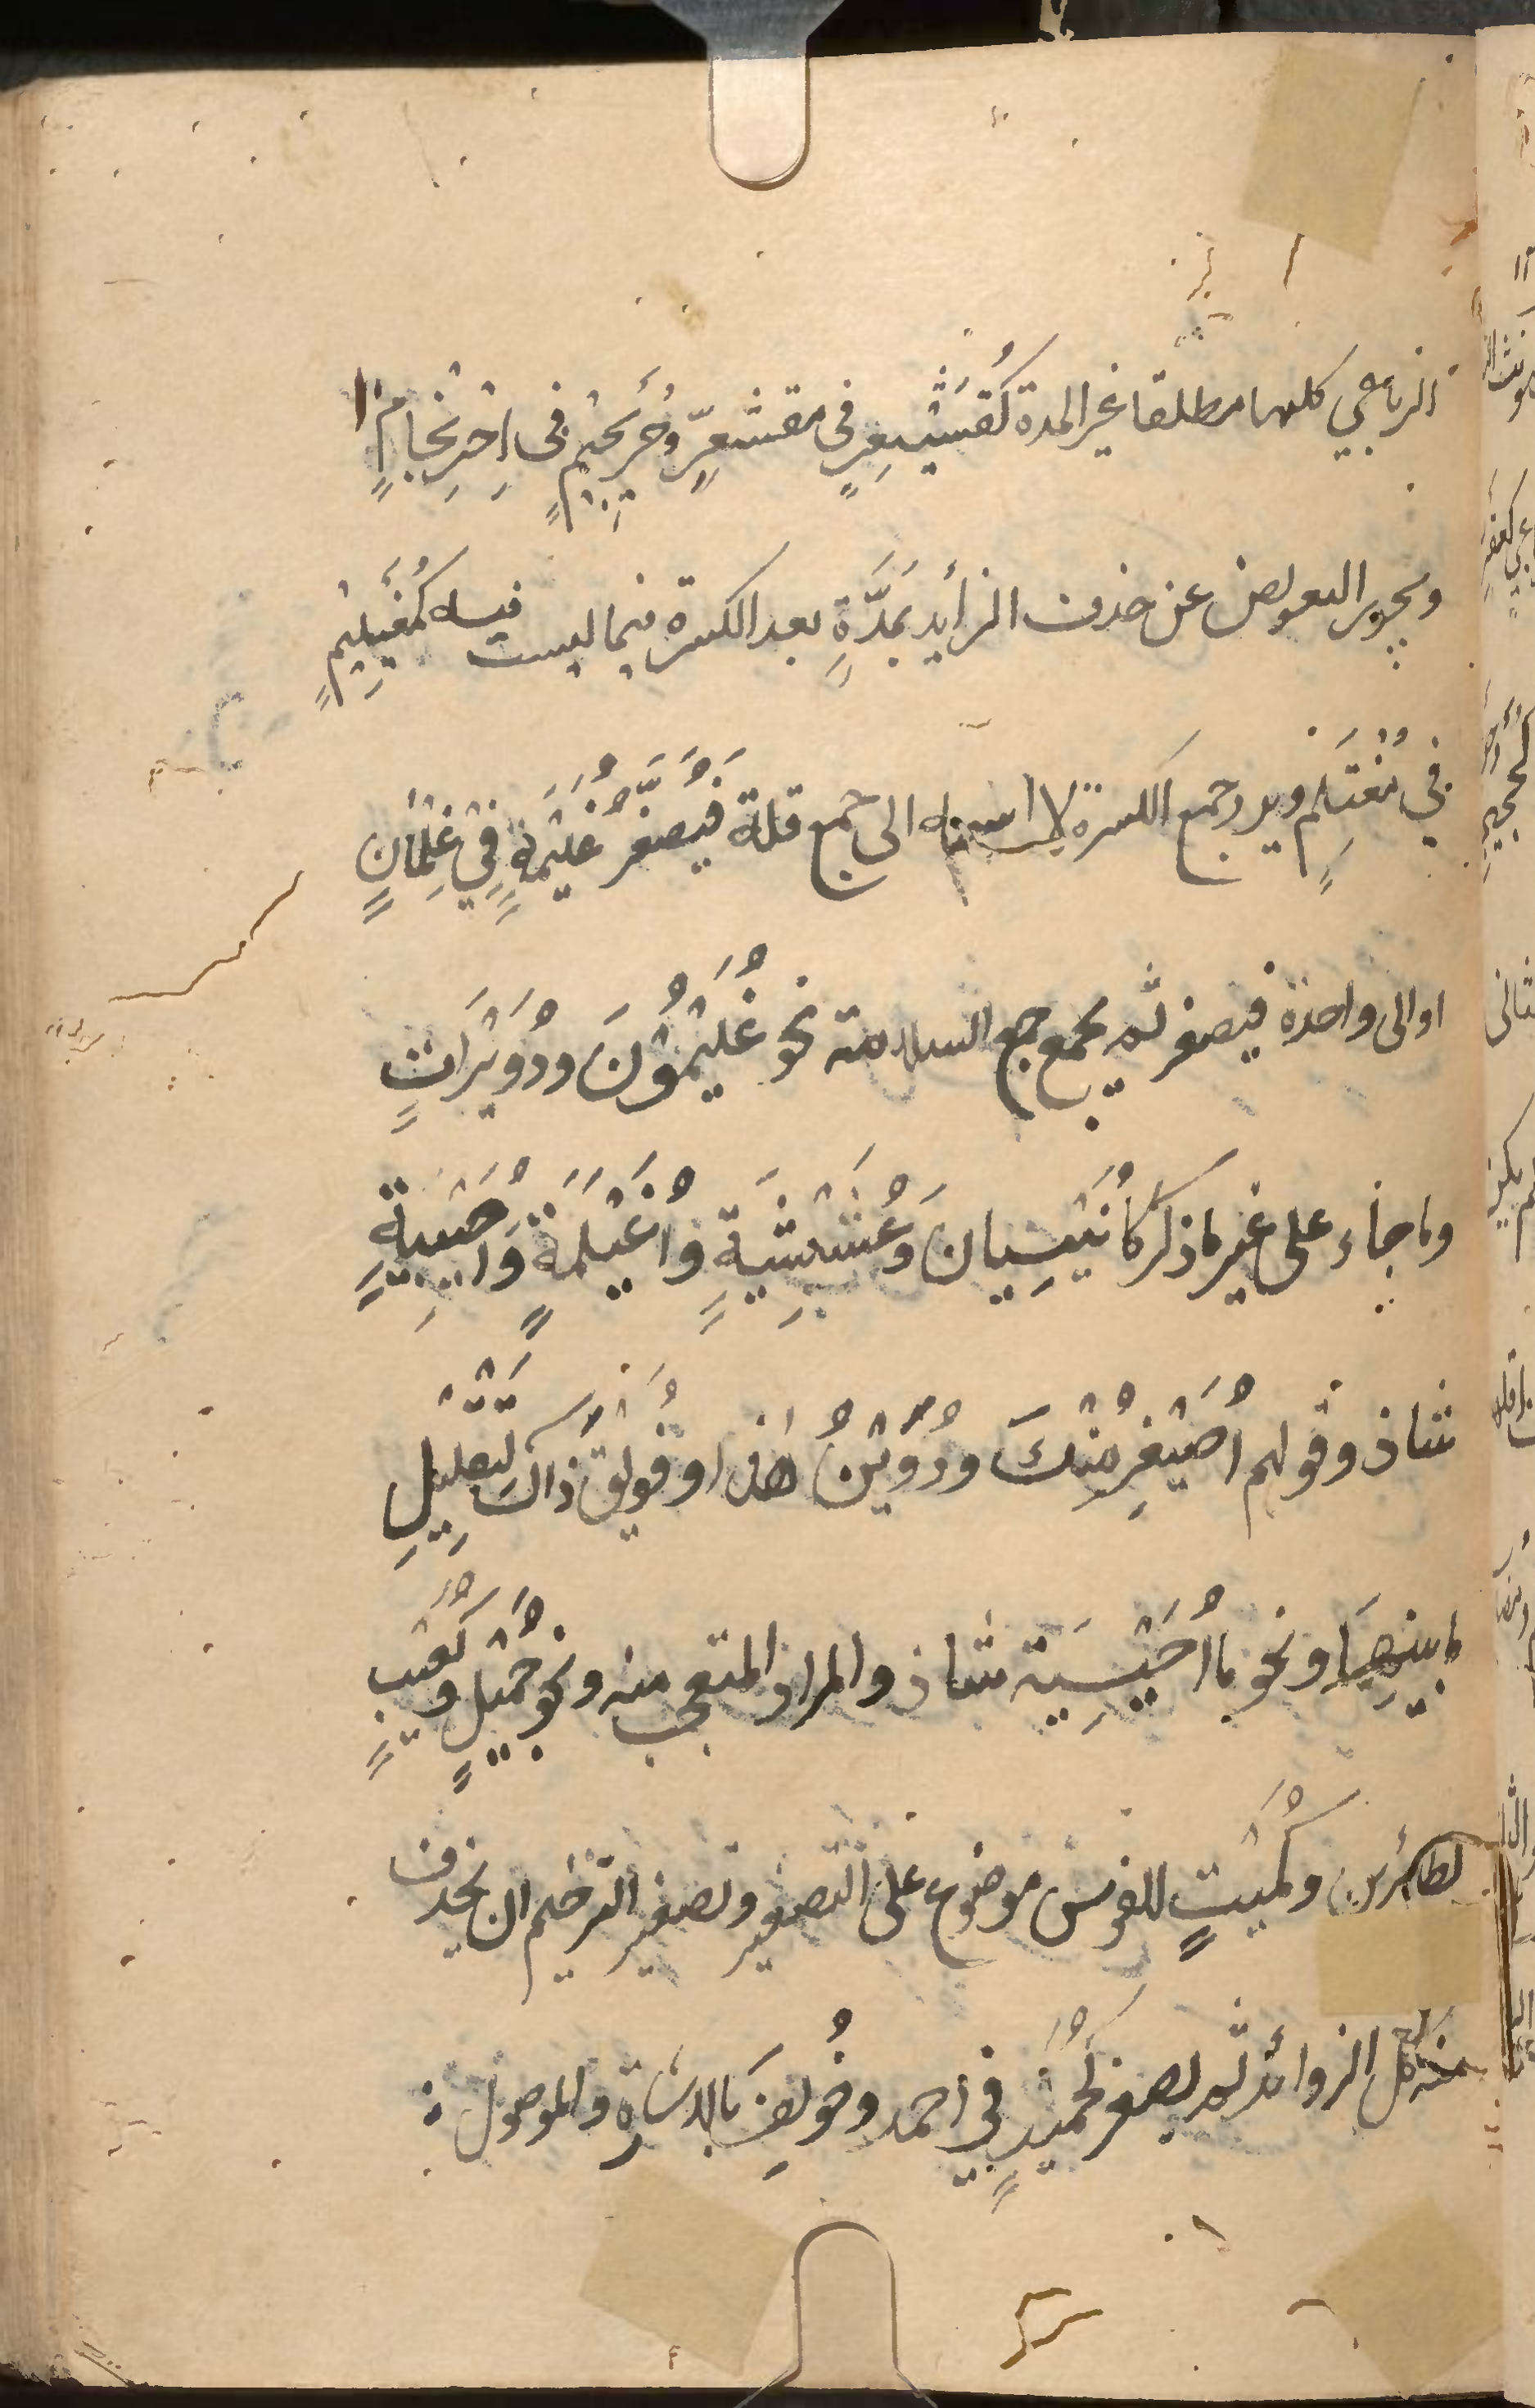 الرباعي كلها مطلقا غير المدة كَقُشَيْعِيرٍ في مقشعرٍّ وحُرَيْجيمٍ في اِحْرِنْجامٍ
ويجوز التعويض عن حذف الزائد بمَدَّةٍ بعد الكسرة فيما ليست فيه كمُغَيْلِيْمٍ
في مُغْتَلِمٍ ويرد جمع الكثرة لا اسمه الى جمع قلة فَيُصَغَّرُ غُلَيْمَةٍ فِيْ غِلْمَانٍ
او الى واحده فيصغر ثم يجمع جمع السلامة نحو غُلَيْمُوْنَ ودُوَيْرَاتٍ
وما جاء على غير ما ذكر كاُنَيْسِيان وَعُشَيْشِيَةٍ واُغَيْلِمَةٍ وَاُصَيْبِيَةٍ
شاذ وقولهم اُصَيْغِرُ مِنْكَ ودُوَيْنُ هٰذا وفُوَيْقَ ذاكَ لِتَقْلِيْلِ
ما بينهما ونحو ما اُحَيْسِنَه شاذ والمراد المتعجب منه ونحو جُمَيْلٍ وكُعَيْتٍ
لطائرين وكُمَيْتٍ للفرس موضوع على التصغير وتصغير الترخيم ان يحذف
منه كل الزوائد ثم يصغر كحُمَيْدٍ في احمد وخُولِفَ بالاشارة والموصول